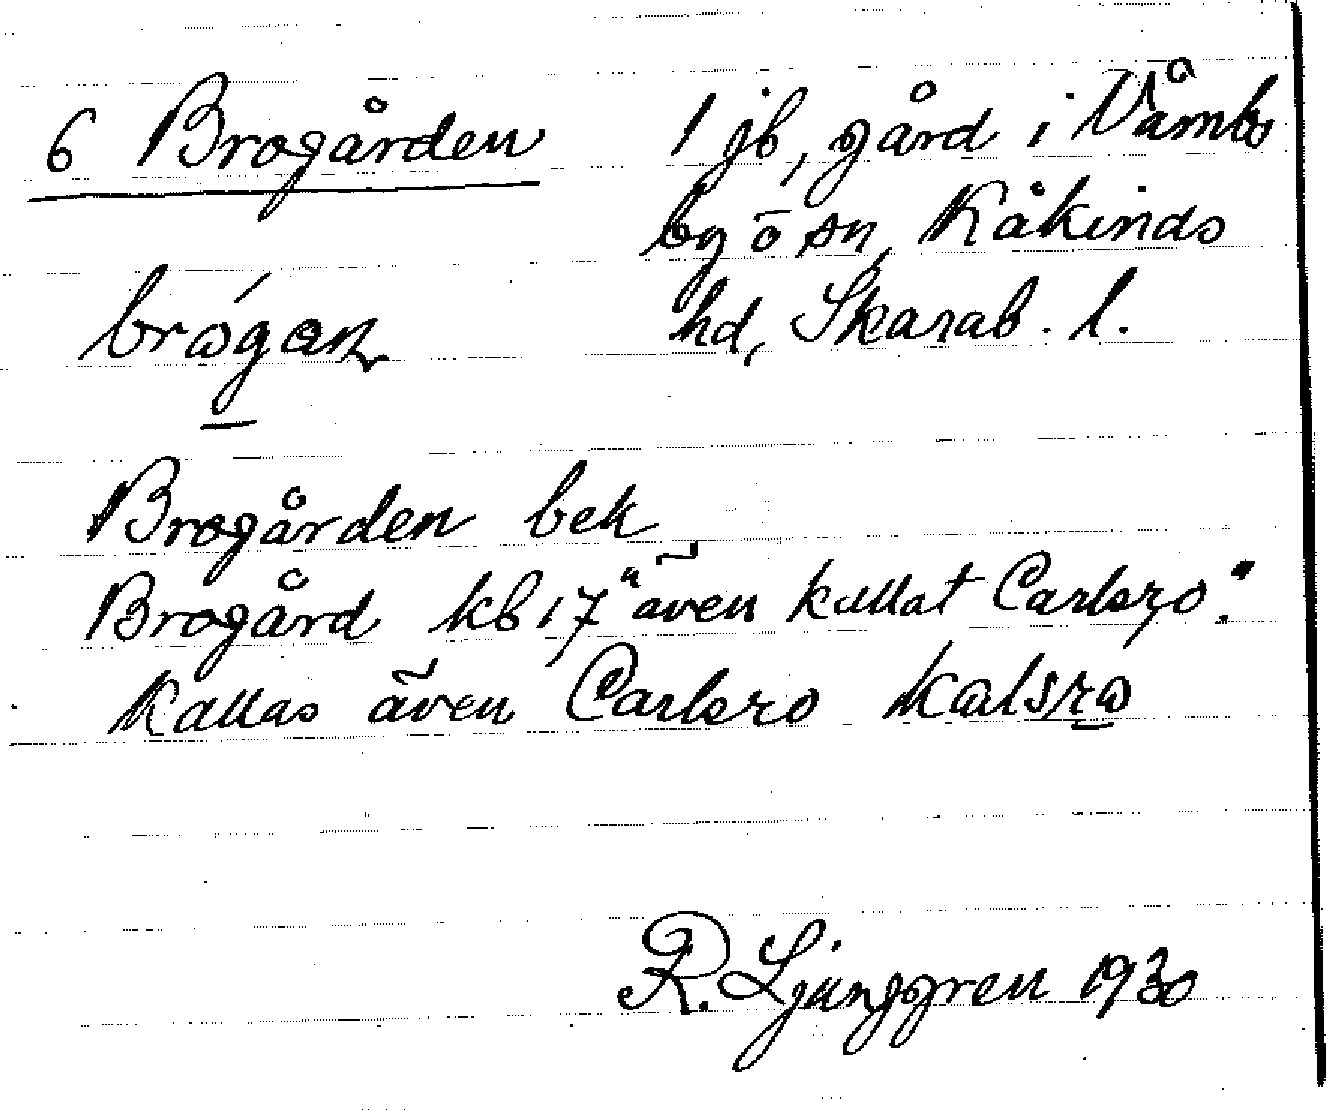 6 Brogården 1 jb, gård i Våmbs
by o sn, Kåkinds
brogan hd, Skarab. l.
Brogården bek
Brogård kb 17 "även kallat Carlsro".
Kallas även Carlsro kalsro
R. Ljunggren 1930